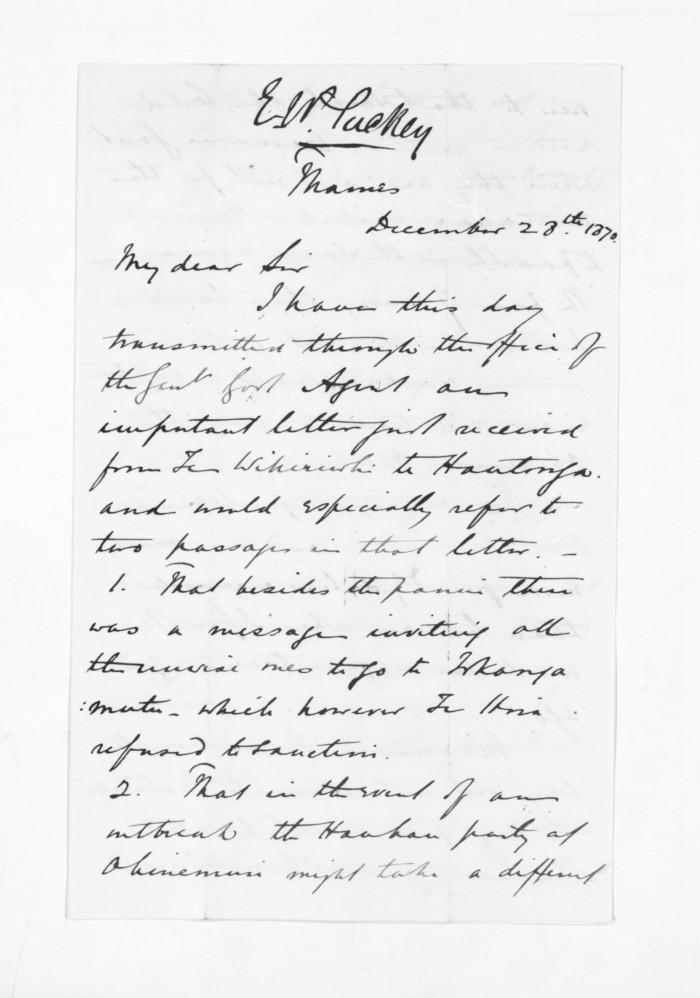 E. W. Puckey
Thames
December 28.th 1870.
My dear Sir
I have this day
transmitted through the office of
the Genl Govt Agent an
important letter just received
from Te to Hautonga.
and would especially refer to
two passages in that letter. -
1. That besides the panui there
was a message inviting all
the unwise ones to go to Tokanga
:mutu - which however Te Hira
refused to sanction.
2. That in the event of an
outbreak the Hauhau party at
Ohinemuri might take a different